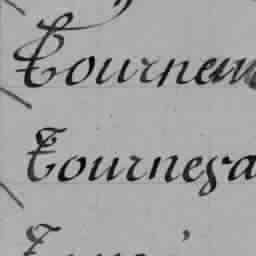 Tournem
Tournesa